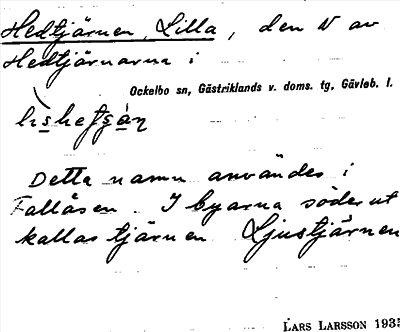 Hedtjärnen, Lilla, den N av
Hedtjärnarna i
Ockelbo sn, Gästriklands v. doms. tg, Gävleb. l.
Detta namn användes i
Fallåsen. I byarna söderut
kallas tjärnen Ljustjärnen
LARS LARSSON 193